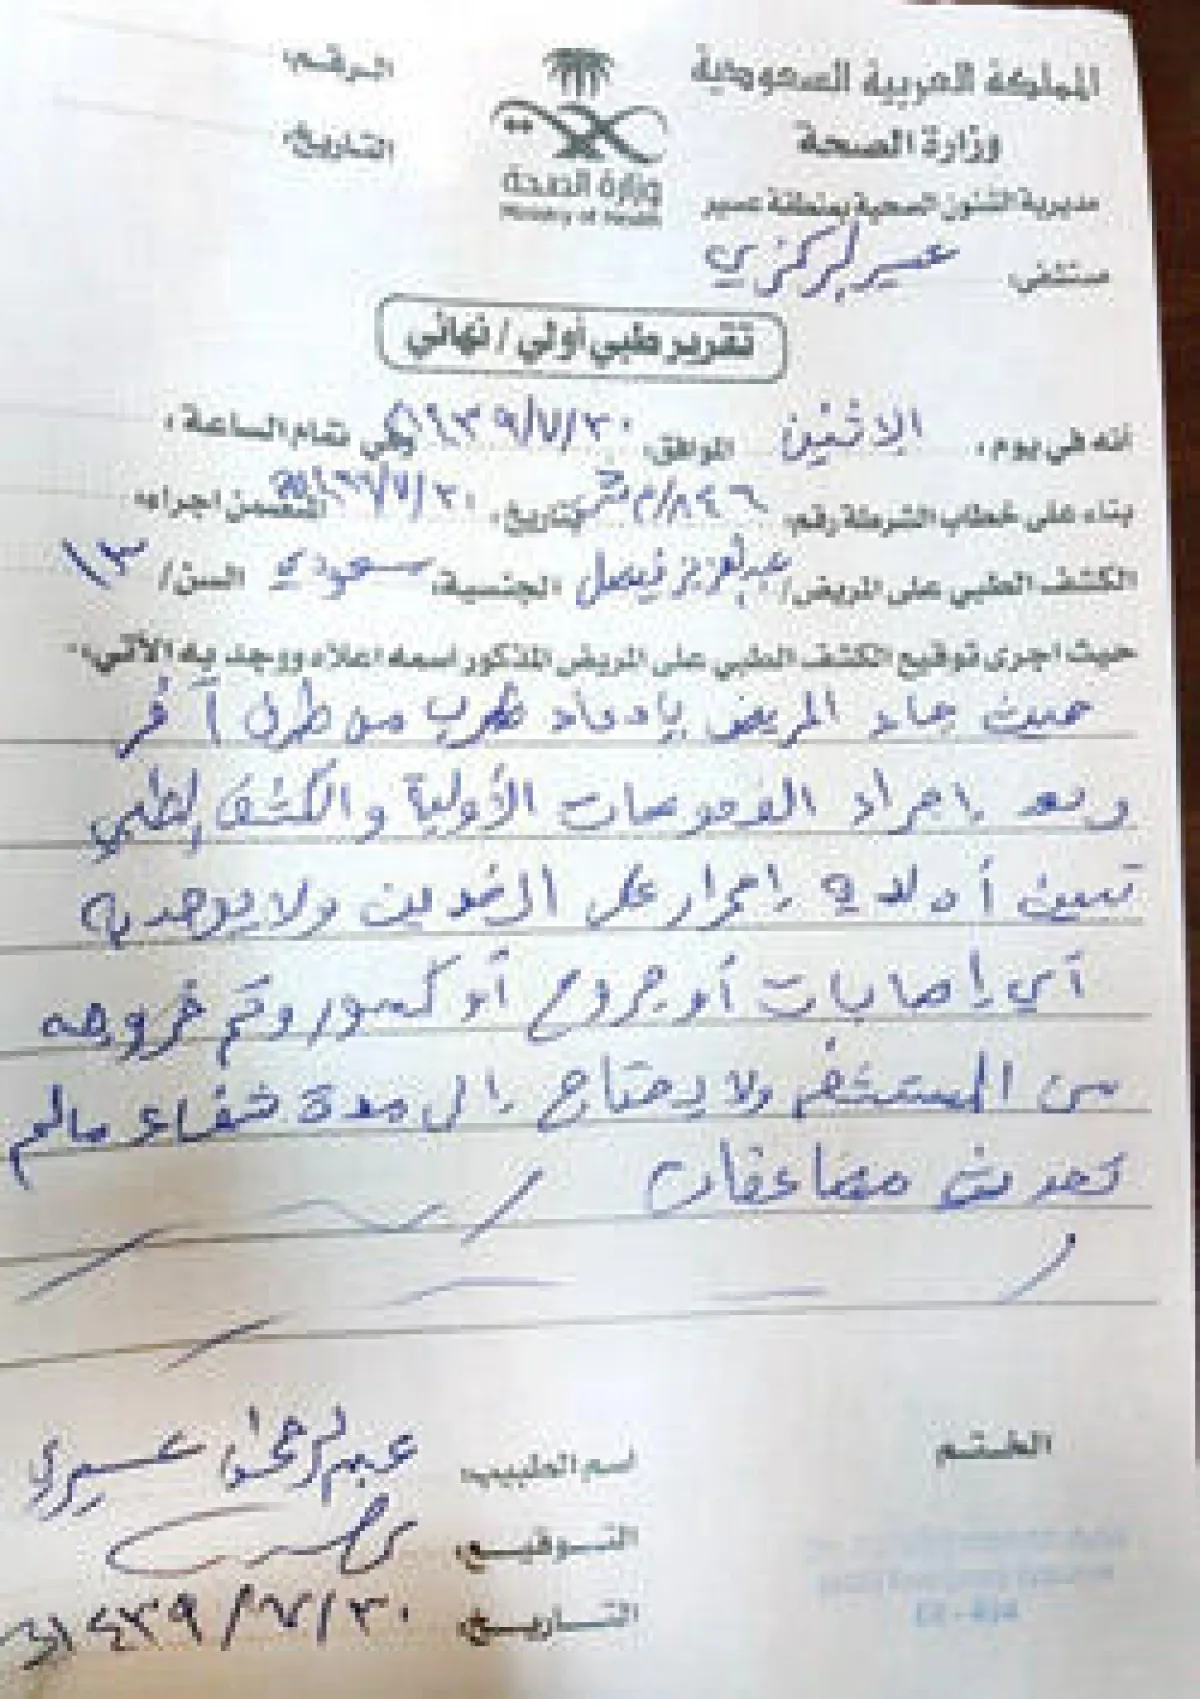 المملكة العربية السعودية
وزارة الصحة
مديرية الشئون الصحية بمنطقة عسير
مستشفى: عسير المركزي
وزارة الصحة
Ministry of Health
الـرقـم:
التـاريخ:
تقرير طبي أولي / نهائي
أنه في يوم، الاثنين الموافق: ١٤٣٩/٧/٣٠ وفي تمام الساعة:
بناء على خطاب الشرطة رقم: بتاريخ: المتضمن اجراء
الكشف الطبي على المريض/ عبدالعزيز فيصل الجنسية: سعودي السن/ ١٣
حيث اجرى توقيع الكشف الطبي على المريض المذكور اسمه اعلاه ووجد به الآتي:-
حيث جاء المريض بإدعاء ضرب من طرف آخر
وبعد إجراء الفحوصات الأولية والكشف الطبي
تبين أن لديه إحمرار على الخدين ولا يوجد به
أي إصابات أو جروح أو كسور وتم خروجه
من المستشفى ولا يحتاج إلى مدة شفاء مالم
تحدث مضاعفات
الختـم
اسم الطبيب: عبدالرحمن عسيري
التـوقيـع:
التـاريـخ: ١٤٣٩/٧/٣٠